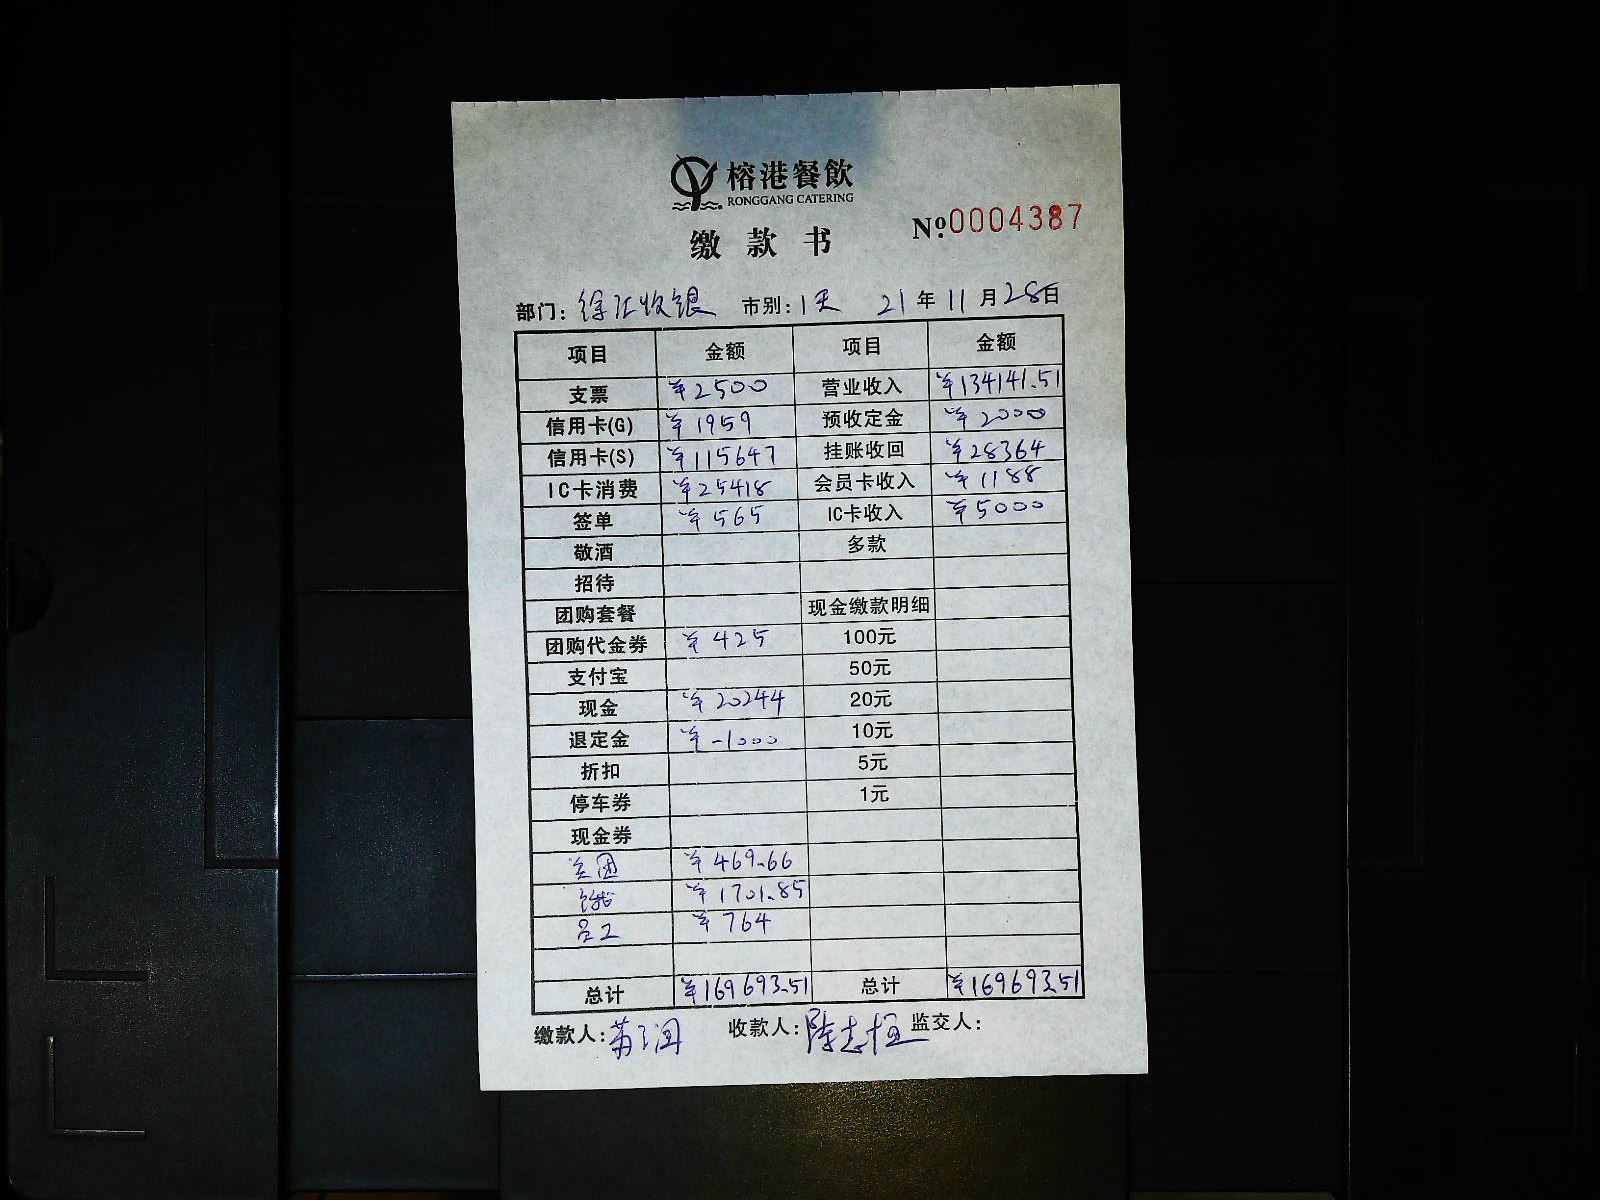 榕港餐飲
RONGGANG CATERING
缴款书 Nº:0004387
部门: 徐汇收银 市别: 1天 21年11月28日
项目 金额 项目 金额
支票 ¥2500 营业收入 ¥134141.51
信用卡(G) ¥1959 预收定金 ¥2000
信用卡(S) ¥115647 挂账收回 ¥28364
IC卡消费 ¥25418 会员卡收入 ¥1188
签单 ¥565 IC卡收入 ¥5000
敬酒 多款
招待
团购套餐 现金缴款明细
团购代金券 ¥425 100元
支付宝 50元
现金 ¥20244 20元
退定金 ¥-1000 10元
折扣 5元
停车券 1元
现金券
美团 ¥469.66
饿 ¥1701.85
¥764
总计 ¥169693.51 总计 ¥169693.51
缴款人: 收款人: 志恒 监交人: